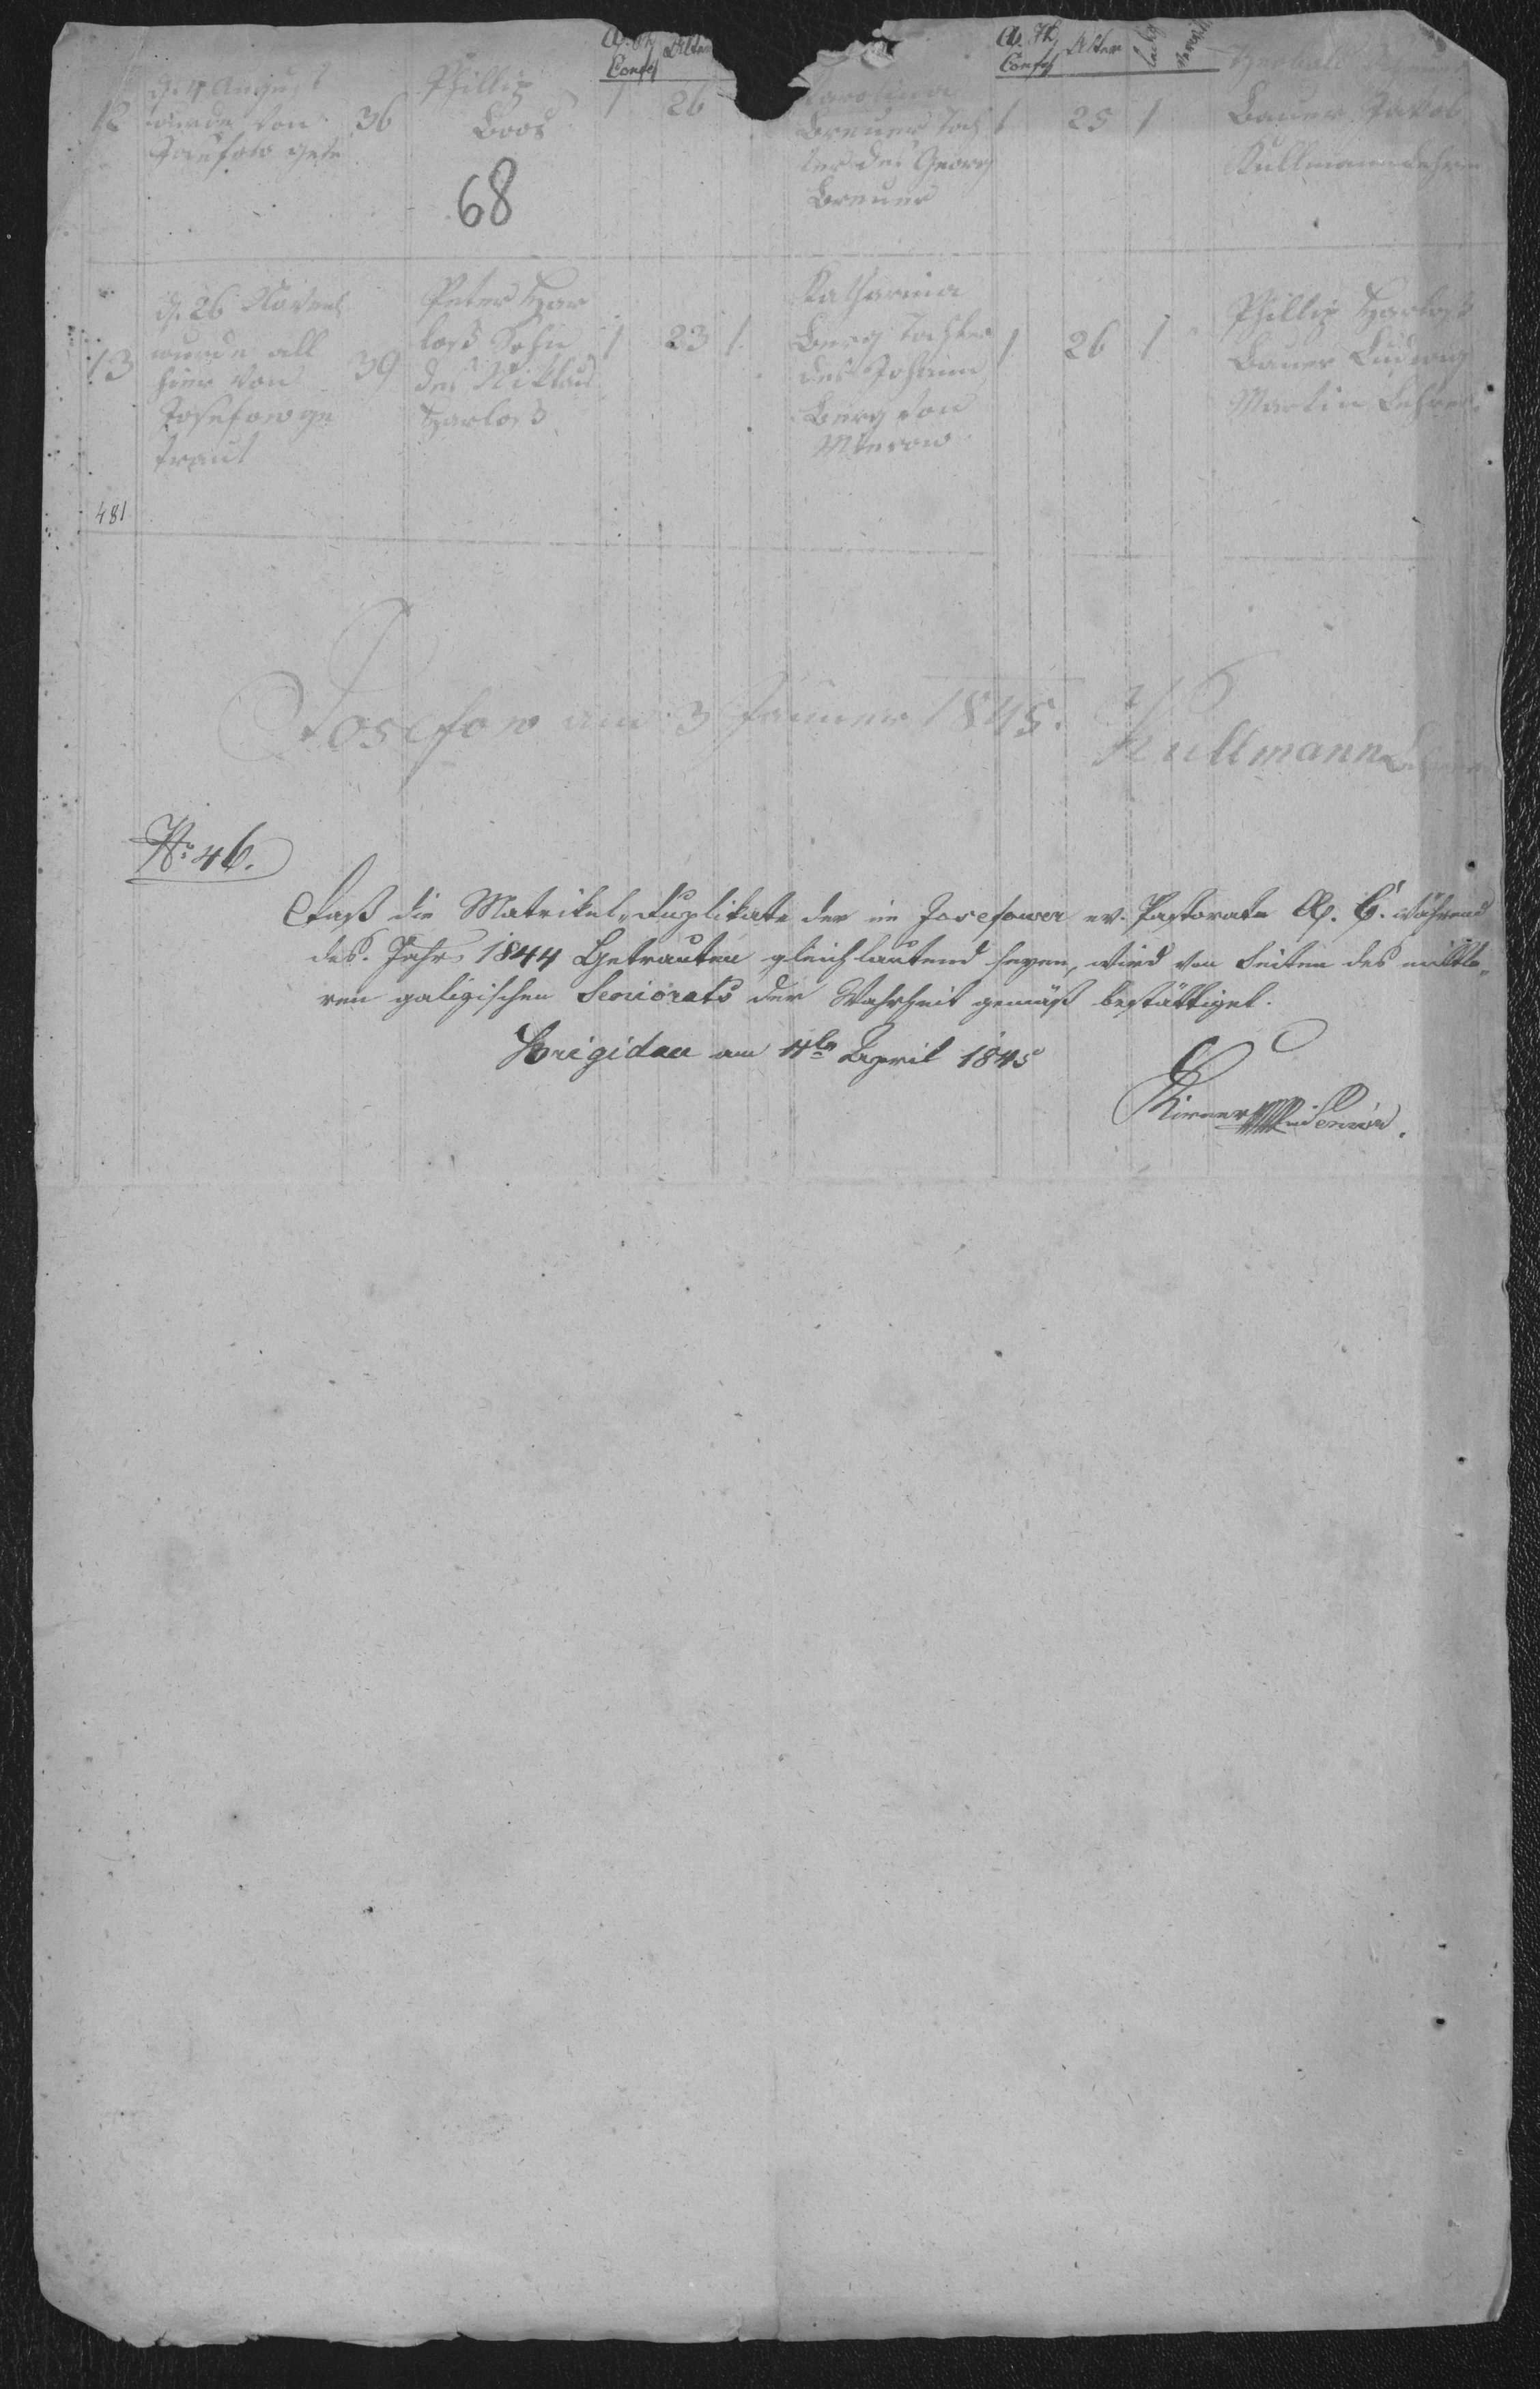 A. Th. Alter
Confes
A. Th. Alter ledig
Confes
12
d. 4 August
wurde von
36
Phillip
Boos
1 26
Karolina
Breuer Toch
ter des Georg
Breuer
1 25 1
Bauer Jakob
Kullmann Lehrer
68
13
d. 26 Novemb
wurde all
hier von
Josefow ge
traut
39
Peter Har
loß Sohn
des Niklaus
Harloß
1 23 1
Katharina
Berg Tochter
des Johann
Berg von
Mierow
1 26 1
Phillip Harloß
Bauer Ludwig
Martin Lehrer
481
Josefow am 3 Jänner 1845.
Kullmann Lehrer
No. 46.
Daß die Matrikel-Duplikate der im Josefower ev. Pastorate A. C. während
des Jahrs 1844 Getrauten gleichlautend seyen, wird von Seiten des mittle-
ren galizischen Seniorats der Wahrheit gemäß bestättiget.
Brigidau am 4ten April 1845
Senior.